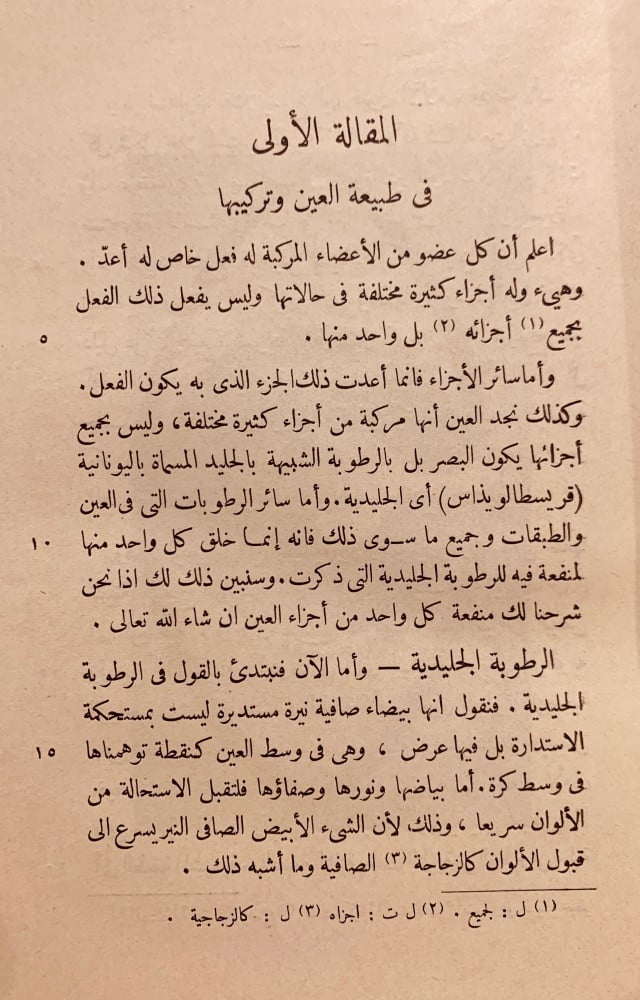 المقالة الأولى
فى طبيعة العين وتركيبها
اعلم أن كل عضو من الأعضاء المركبة له فعل خاص له أعدّ .
وهيىء وله أجزاء كثيرة مختلفة فى حالاتها وليس يفعل ذلك الفعل
بجميع (١) أجزائه (٢) بل واحد منها . ٥
وأما سائر الأجزاء فانما أعدت ذلك الجزء الذى به يكون الفعل .
وكذلك نجد العين أنها مركبة من أجزاء كثيرة مختلفة ، وليس بجميع
أجزائها يكون البصر بل بالرطوبة الشبيهة بالجليد المسماة باليونانية
(قريسطالويذاس) أى الجليدية . وأما سائر الرطوبات التى فى العين
والطبقات وجميع ما سوى ذلك فانه إنما خلق كل واحد منها ١٠
لمنفعة فيه للرطوبة الجليدية التى ذكرت . وسنبين ذلك لك اذا نحن
شرحنا لك منفعة كل واحد من أجزاء العين ان شاء الله تعالى .
الرطوبة الجليدية — وأما الآن فنبتدئ بالقول فى الرطوبة
الجليدية . فنقول انها بيضاء صافية نيرة مستديرة ليست بمستحكمة
الاستدارة بل فيها عرض ، وهى فى وسط العين كنقطة توهمناها ١٥
فى وسط كرة . أما بياضها ونورها وصفاؤها فلتقبل الاستحالة من
الألوان سريعا ، وذلك لأن الشىء الأبيض الصافى النير يسرع الى
قبول الألوان كالزجاجة (٣) الصافية وما أشبه ذلك .
(١) ل : لجميع . (٢) ل ت : اجزاه (٣) ل : كالزجاجية .